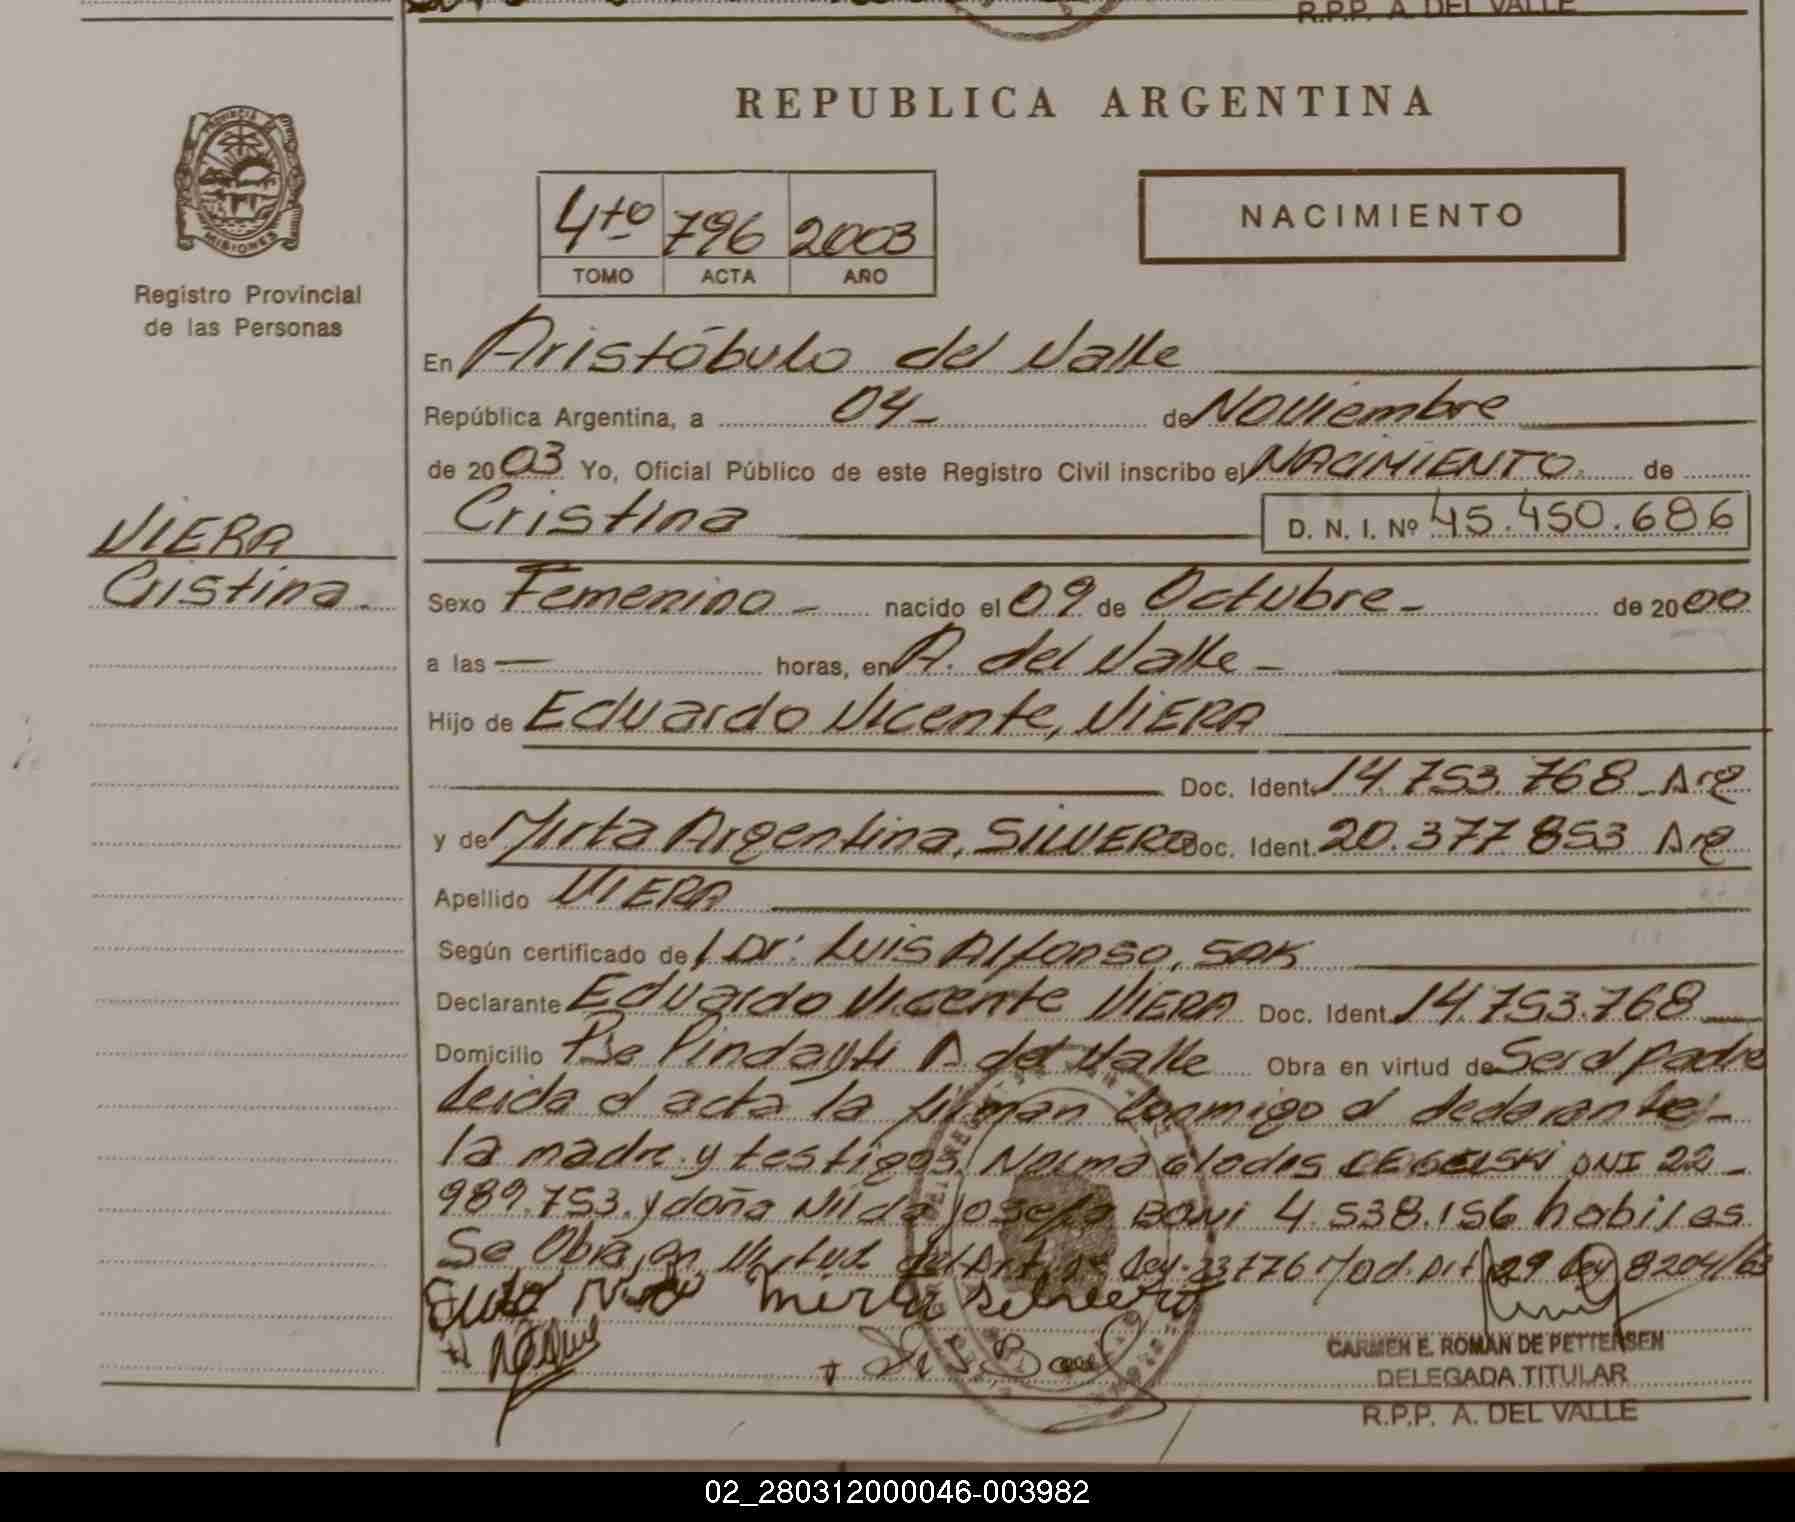 R.P.P. A. DEL VALLE
REPUBLICA ARGENTINA
PROVINCIA DE
MISIONES
Registro Provincial
de las Personas
4to 796 2003
TOMO ACTA AÑO
NACIMIENTO
En Aristóbulo del Valle
República Argentina, a 04- de Noviembre
de 2003 Yo, Oficial Público de este Registro Civil inscribo el NACIMIENTO. de
Cristina D. N. I. Nº 45.450.686
VIERA
Cristina.
Sexo Femenino - nacido el 09 de Octubre - de 2000
a las — horas, en A. del Valle -
Hijo de Eduardo Vicente, VIERA
Doc. Ident. 14.753.768 - Arg
y de Mirta Argentina, SILVERO Doc. Ident. 20.377853 Arg
Apellido VIERA
Según certificado de l Dr: Luis Alfonso, SAK
Declarante Eduardo Vicente VIERA Doc. Ident. 14.753.768
Domicilio Pje Pindayti A del Valle Obra en virtud de Ser el padre
Leida el acta la firman conmigo el declarante -
la madre y testigos Norma Gladis DNI 22 -
989.753. y doña Nilda Josefa BONI 4.538.156 habiles
Se Obra en Virtud del Art. Ley. 23776 Mod. Art 29 Ley 8204/63
Mirta Silvero
CARMEN E. ROMAN DE PETTERSEN
DELEGADA TITULAR
R.P.P. A. DEL VALLE
02_280312000046-003982